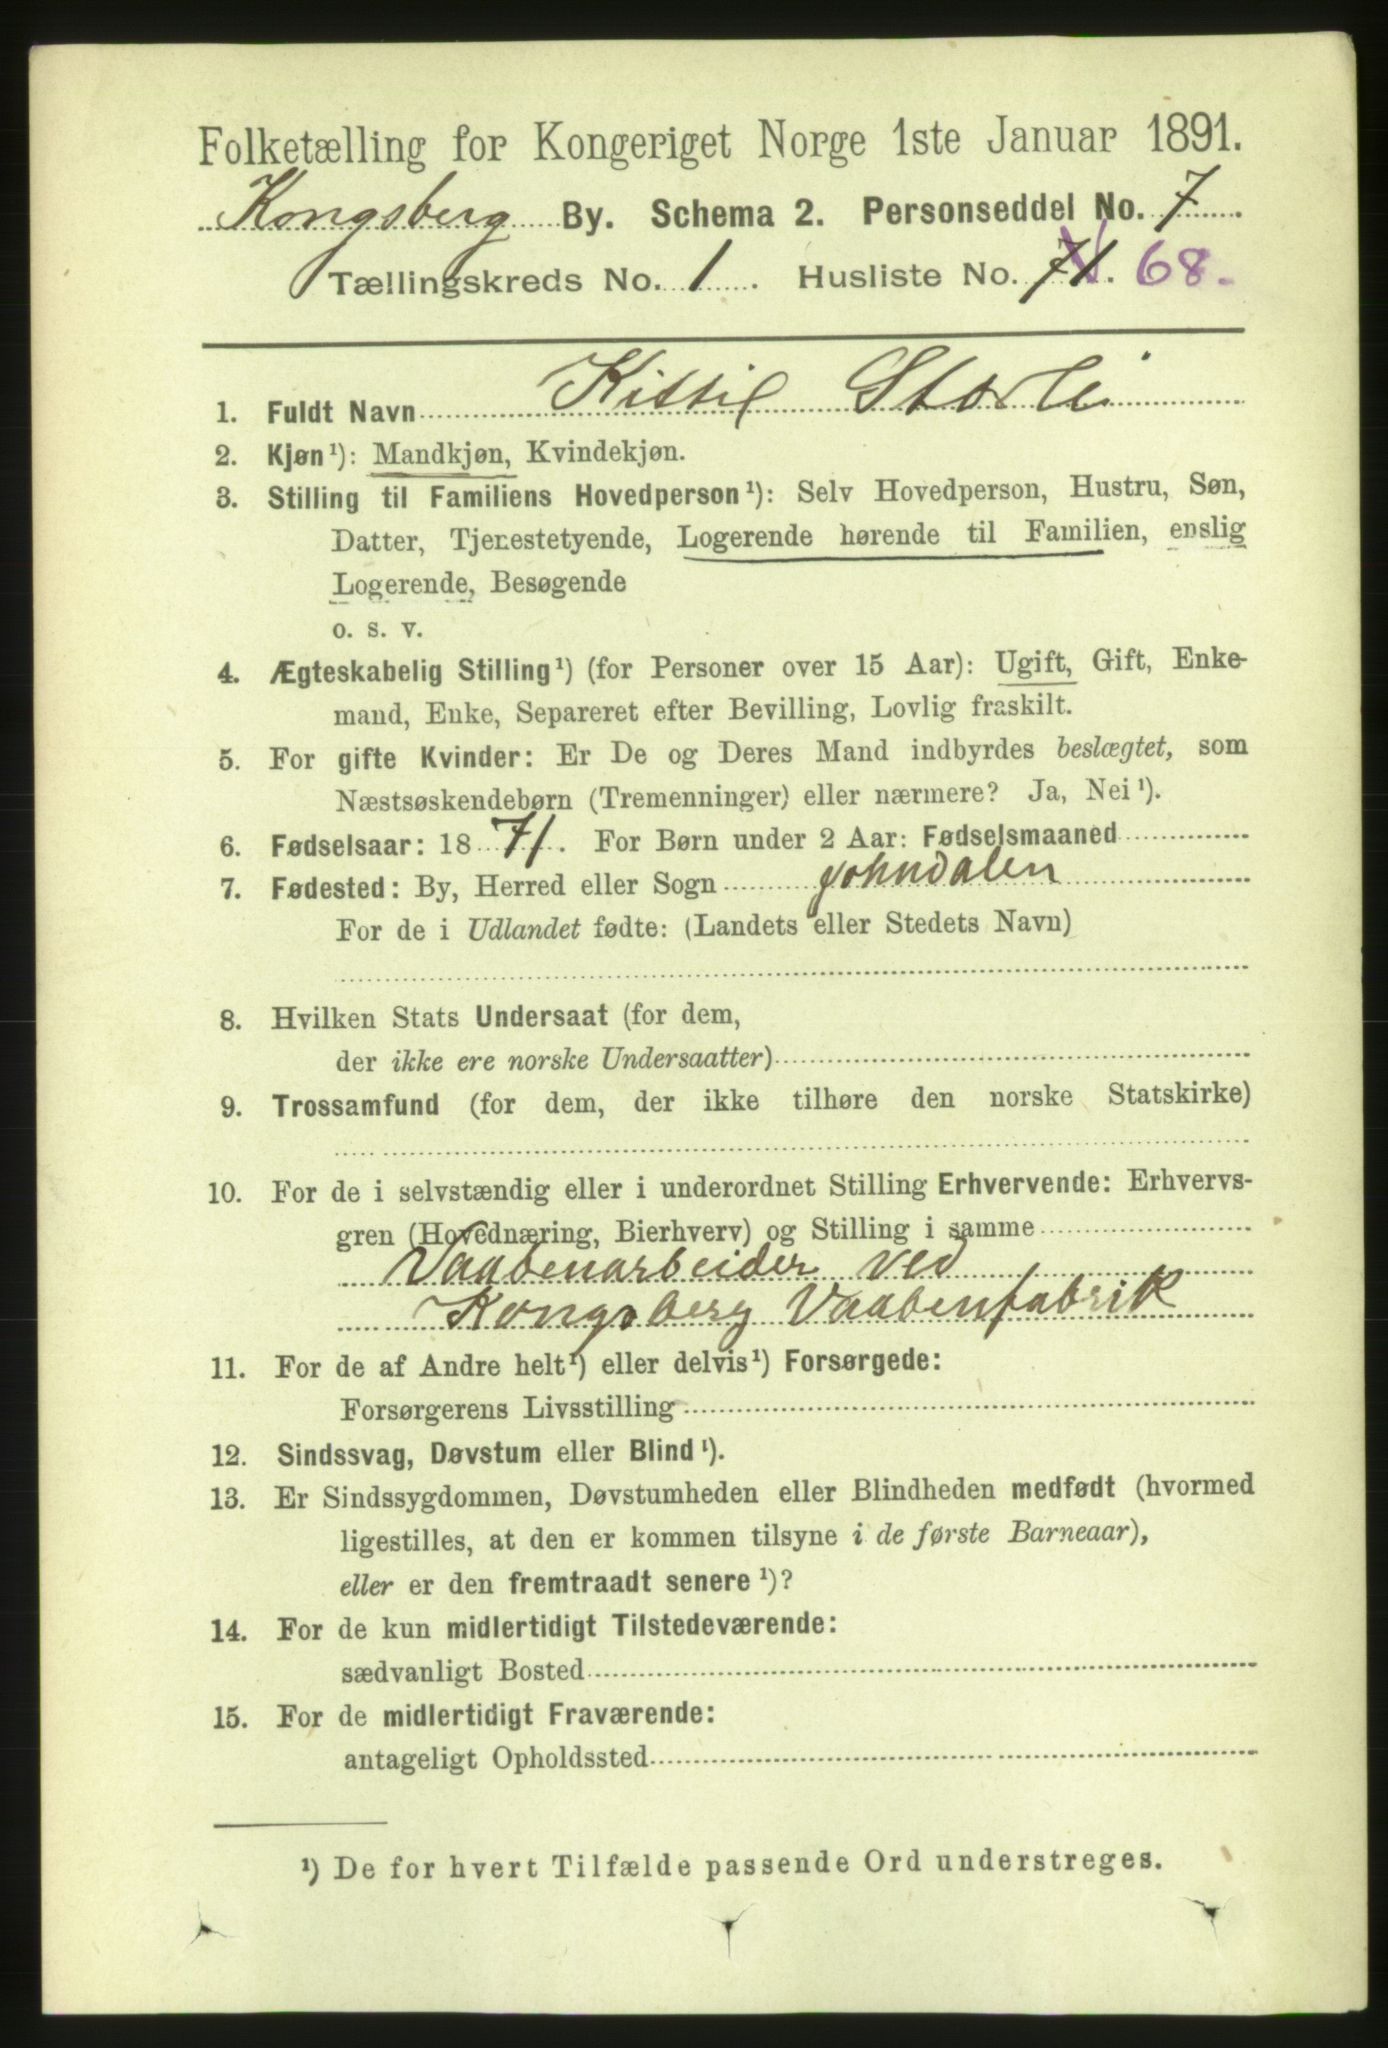 Folketælling for Kongeriget Norge 1ste Januar 1891.
Kongsberg By. Schema 2. Personseddel No. 7
Tællingskreds No. 1. Husliste No. 71. 68.
1. Fuldt Navn Kittil Storli
2. Kjøn¹): Mandkjøn, Kvindekjøn.
3. Stilling til Familiens Hovedperson¹): Selv Hovedperson, Hustru, Søn,
Datter, Tjenestetyende, Logerende hørende til Familien, enslig
Logerende, Besøgende
o. s. v.
4. Ægteskabelig Stilling¹) (for Personer over 15 Aar): Ugift, Gift, Enke-
mand, Enke, Separeret efter Bevilling, Lovlig fraskilt.
5. For gifte Kvinder: Er De og Deres Mand indbyrdes beslægtet, som
Næstsøskendebørn (Tremenninger) eller nærmere? Ja, Nei¹).
6. Fødselsaar: 1871. For Børn under 2 Aar: Fødselsmaaned
7. Fødested: By, Herred eller Sogn Johndalen
For de i Udlandet fødte: (Landets eller Stedets Navn)
8. Hvilken Stats Undersaat (for dem,
der ikke ere norske Undersaatter)
9. Trossamfund (for dem, der ikke tilhøre den norske Statskirke)
10. For de i selvstændig eller i underordnet Stilling Erhvervende: Erhvervs-
gren (Hovednæring, Bierhverv) og Stilling i samme
Vaabenarbeider ved
Kongsberg Vaabenfabrik
11. For de af Andre helt¹) eller delvis¹) Forsørgede:
Forsørgerens Livsstilling
12. Sindssvag, Døvstum eller Blind¹).
13. Er Sindssygdommen, Døvstumheden eller Blindheden medfødt (hvormed
ligestilles, at den er kommen tilsyne i de første Barneaar),
eller er den fremtraadt senere¹)?
14. For de kun midlertidigt Tilstedeværende:
sædvanligt Bosted
15. For de midlertidigt Fraværende:
antageligt Opholdssted
¹) De for hvert Tilfælde passende Ord understreges.